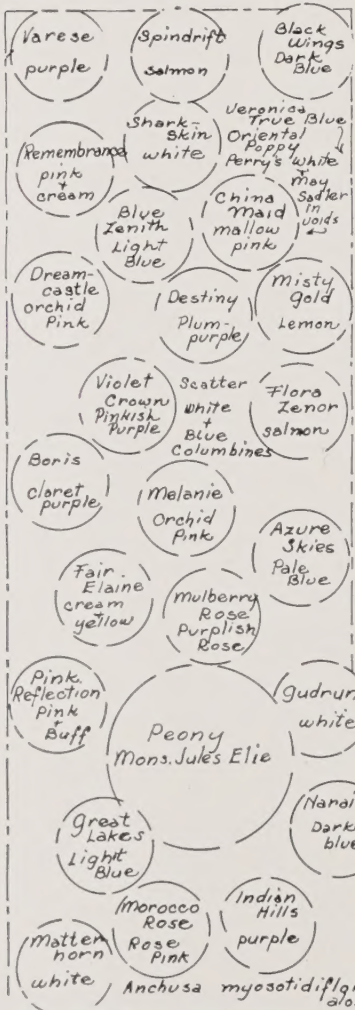 Varese
purple
Spindrift
salmon
Black
Wings
Dark
Blue
Shark-
Skin
white
Veronica
True Blue
Oriental
Poppy
Perry's White
+
May
Sadler
in
voids
Remembrance
pink
+
cream
Blue
Zenith
Light
Blue
China
Maid
mallow
pink
Dream-
castle
orchid
Pink
Destiny
Plum-
purple
Misty
gold
Lemon
Violet
Crown
Pinkish
Purple
Scatter
white
+
Blue
Columbines
Flora
Zenor
salmon
Boris
claret
purple
Melanie
Orchid
Pink
Azure
Skies
Pale
Blue
Fair
Elaine
cream
yellow
Mulberry
Rose
Purplish
Rose
Pink
Reflection
Pink
+
Buff
Peony
Mons. Jules Elie
gudrun
white
great
Lakes
Light
Blue
Narai
Dark
blue
Morocco
Rose
Rose
Pink
Indian
Hills
purple
Matter
horn
white
Anchusa myosotidiflor